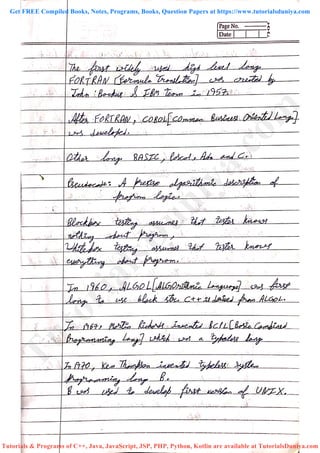 Get FREE Compiled Books, Notes, Programs, Books, Question Papers at https://www.tutorialsduniya.com
Page No.
Date
The first widely used high level lang.
FORTRAN [Formula Translation] was created by
John Backus & IBM team in 1957.
After FORTRAN, COBOL [Common Business Oriented Lang]
was developed.
Other lang BASIC, Pascal, Ada and C.
Pseudocode: A precise algorithmic description of
program logic.
Blackbox testing assumes that tester knows
nothing about program,
Whitebox testing assumes that tester knows
everything about program.
In 1960, ALGOL [ALGOrithmic Language] was first
lang to use block stru. C++ is derived from ALGOL.
In 1967, Martin Richards invented BCPL [Basic Combined
Programming Lang] which was a typeless lang
In 1970, Ken Thompson invented typeless system
programming lang B.
B was used to develop first version of UNIX.
Tutorials & Programs of C++, Java, JavaScript, JSP, PHP, Python, Kotlin are available at TutorialsDuniya.com